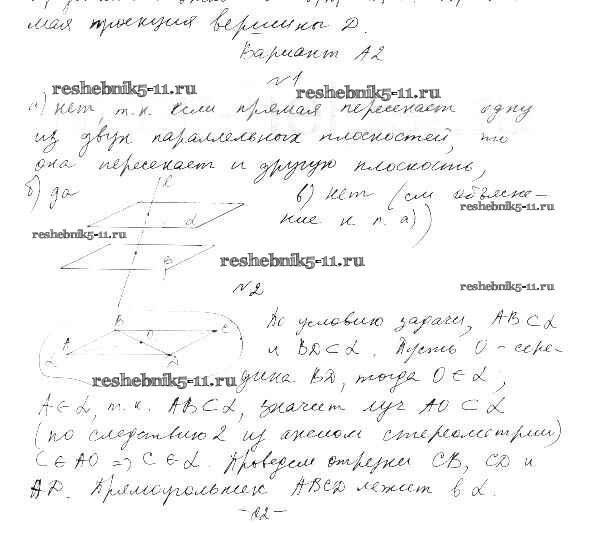 мая проекция вершины D.
Вариант А2
№1
reshebnik5-11.ru reshebnik5-11.ru
а) нет, т.к. если прямая пересекает одну
из двух параллельных плоскостей, то
она пересекает и другую плоскость,
б) да в) нет (см объясне-
reshebnik5-11.ru
ние к п. а))
α
reshebnik5-11.ru
β
reshebnik5-11.ru
reshebnik5-11.ru
№2
B C
По условию задачи, AB ⊂ α
и BD ⊂ α. Пусть O - сере-
A O D
reshebnik5-11.ru
дина BD, тогда O ∈ α;
A ∈ α, т.к. AB ⊂ α, значит луч AO ⊂ α
(по следствию 2 из аксиом стереометрии)
C ∈ AO => C ∈ α. Проведем отрезки CB, CD и
AD. Прямоугольник ABCD лежит в α.